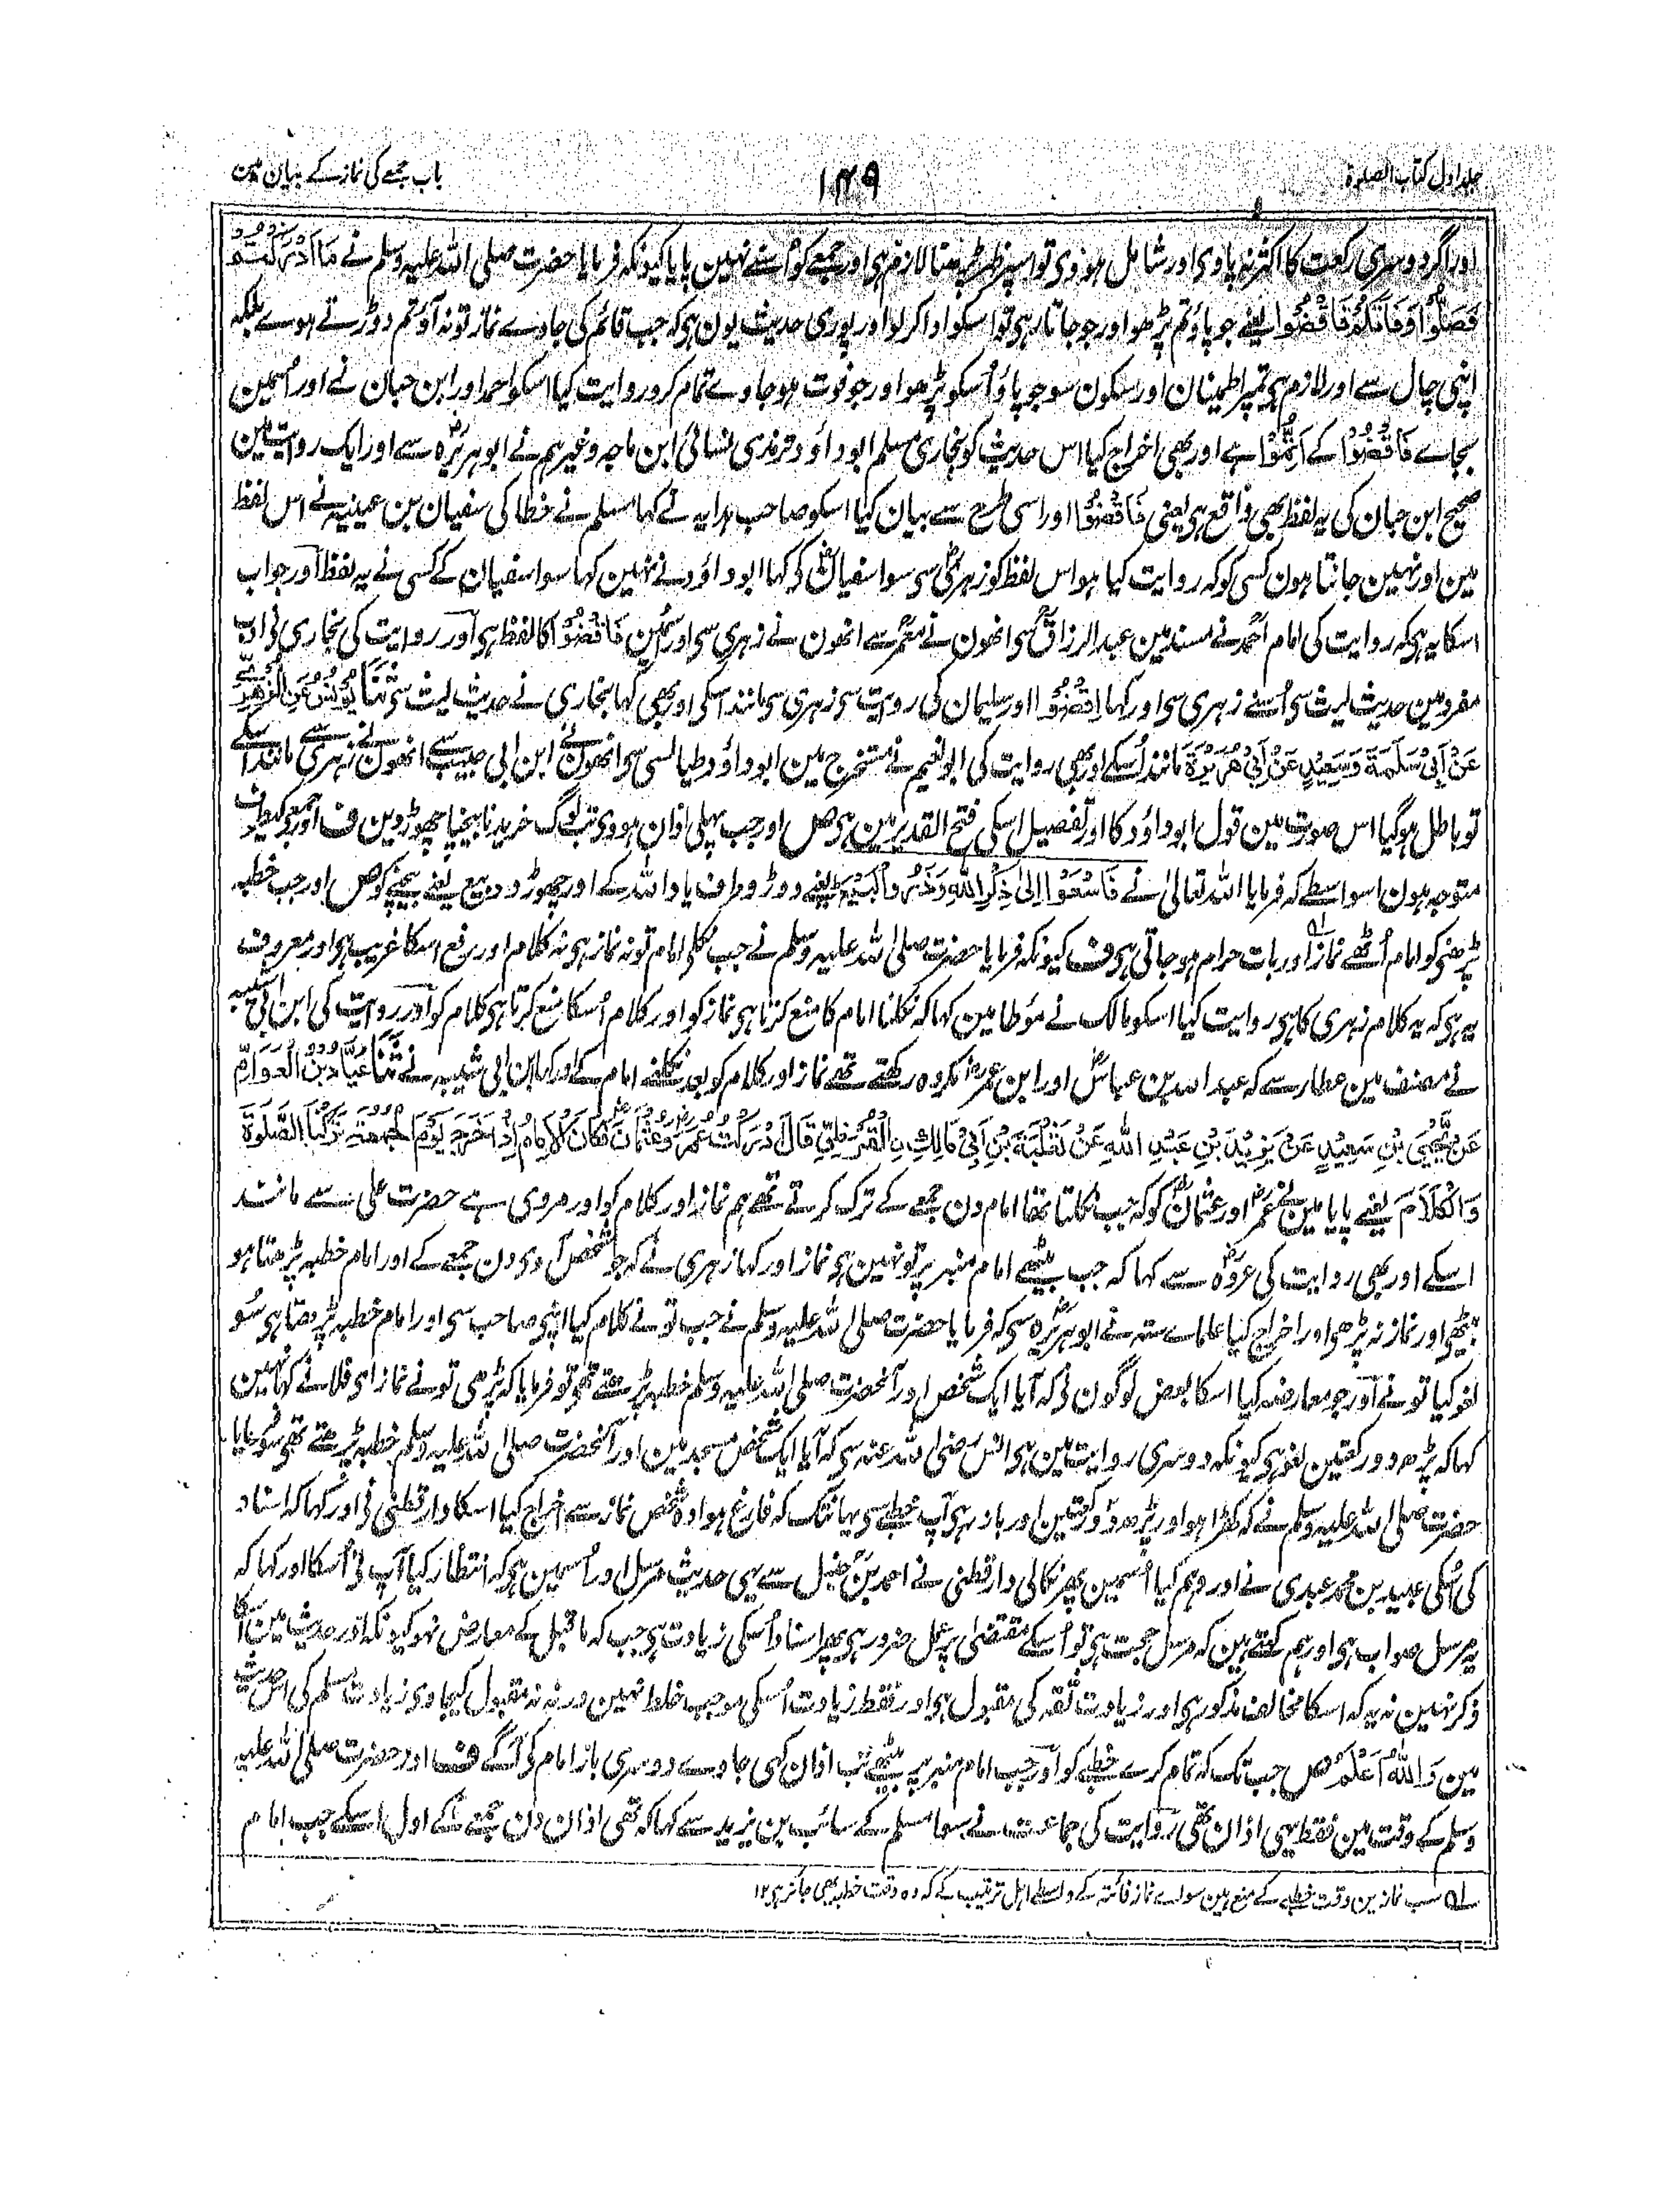 جلد اول کتاب الصلوة
۱۴۹
باب جمعے کی نماز کے بیان مین
اور اگر دوسری رکعت کا اکثر نہ پاوی اور شامل ہووی تو اسپر ظہر پڑھنا لازم ہی اور جمعے کو اُسنے نہین پایا کیونکہ فرمایا حضرت صلی اللہ علیہ وسلم نے مَا اَدْرَكْتُمْ
فَصَلُّوْا وَمَا فَاتَكُمْ فَاقْضُوْا یعنے جو پاؤ تم پڑھو اور جو جاتا رہی تو اسکو ادا کر لو اور پوری حدیث یون ہی کہ جب قائم کی جاوے نماز تو نہ آؤ تم دوڑتے ہوے بلکہ
اپنی چال سے اور لازم ہی تمپر اطمینان اور سکون سو جو پاؤ اُسکو پڑھو اور جو فوت ہو جاوے تمام کرو روایت کیا اسکو احمد اور ابن حبان نے اور اُسمین
بجاے فَاقْضُوْا کے اَتِمُّوْا ہے اور بھی اخراج کیا اس حدیث کو بخاری مسلم ابو داؤد ترمذی نسائی ابن ماجہ وغیرہم نے ابو ہریرہؓ سے اور ایک روایت مین
صحیح ابن حبان کی یہ لفظ بھی واقع ہی یعنی فَاقْضُوْا اور اسی طرح سے بیان کیا اسکو صاحب ہدایہ نے کہا مسلم نے خطا کی سفیان بن عیینہ نے اس لفظ
مین اور نہین جانتا ہون کسی کو کہ روایت کیا ہو اس لفظ کو زہریؒ سی سوا سفیانؒ کی کہا ابو داؤد نے نہین کہا سوا سفیان کے کسی نے یہ لفظ اور جواب
اسکا یہ ہی کہ روایت کی امام احمدؒ نے مسند مین عبد الرزاقؒ سی انھون نے معمرؒ سے انھون نے زہری سی اور اسمین فَاقْضُوْا کا لفظ ہی اور روایت کی بخاری نی ادب
مفرد مین حدیث لیث سی اُسنے زہری سی اور کہا اِقْضُوْا اور سلیمان کی روایت سی زہری سی مانند اسکی اور بھی کہا بخاری نے حدیث لیث سی ثَنَا يُوْنُسُ عَنِ الزُّهْرِيِّ
عَنْ اَبِيْ سَلَمَةَ وَسَعِيْدٍ عَنْ اَبِيْ هُرَيْرَةَ مانند اُسکے اور بھی روایت کی ابو نعیم نے مستخرج مین ابو داؤد طیالسی سی انھون نے ابن ابی حبیب سے انھون نے زہری سے مانند اسکے
تو باطل ہو گیا اس صورت مین قول ابو داؤد کا اور تفصیل اسکی فتح القدیر مین ہی ص اور جب پہلی اذان ہووی تب لوگ خرید نا بیچنا چھوڑ دین ف اور جمعے کیطرف
متوجہ ہون اسواسطے کہ فرمایا اللہ تعالیٰ نے فَاسْعَوْا اِلٰى ذِكْرِ اللهِ وَذَرُوا الْبَيْعَ یعنے دوڑو طرف یاد اللہ کے اور چھوڑ دو بیع یعنے بیچنے کو ص اور جب خطبہ
پڑھنی کو امام اُٹھے نماز اور بات حرام ہو جاتی ہی ف کیونکہ فرمایا حضرت صلی اللہ علیہ وسلم نے جب نکلی امام تو نہ نماز ہی نہ کلام اور رفع اسکا غریب ہی اور معروف
یہ ہی کہ یہ کلام زہری کا ہی روایت کیا اسکو مالک نے مؤطا مین کہا کہ نکلنا امام کا منع کرتا ہی نماز کو اور کلام اُسکا منع کرتا ہی کلام کو اور روایت کی ابن ابی شیبہ
نے مصنف مین عطار سے کہ عبد اللہ بن عباسؓ اور ابن عمرؓ مکروہ رکھتے تھے نماز اور کلام کو بعد نکلنے امام کے اور کہا ابن ابی شیبہ نے ثَنَا عَبَّادُ بْنُ الْعَوَامِّ
عَنْ يَحْيَى بْنِ سَعِيْدٍ عَنْ يَزِيْدَ بْنِ عَبْدِ اللهِ عَنْ ثَعْلَبَةَ بْنِ اَبِيْ مَالِكِ الْقُرَظِيِّ قَالَ اَدْرَكْتُ عُمَرَ وَعُثْمَانَ فَكَانَ الْاِمَامُ اِذَا خَرَجَ يَوْمَ الْجُمُعَةِ تَرَكْنَا الصَّلٰوةَ
وَالْكَلَامَ یعنے پایا مین نے عمرؓ اور عثمانؓ کو کہ جب نکلتا تھا امام دن جمعے کے ترک کرتے تھے ہم نماز اور کلام کو اور مروی ہے حضرت علی سے مانند
اسکے اور بھی روایت کی عروہؓ سے کہا کہ جب بیٹھے امام منبر پر تو نہین ہی نماز اور کہا زہری نے کہ جو شخص آوی دن جمعے کے اور امام خطبہ پڑھتا ہو
بیٹھی اور نماز نہ پڑھو اور اخراج کیا علماے ستہ نے ابو ہریرہؓ سی کہ فرمایا حضرت صلی اللہ علیہ وسلم نے جب تو نے کلام کیا اپنی صاحب سی اور امام خطبہ پڑھتا ہی سو
لغو کیا تو نے اور جو معارضہ کیا اسکا بعض لوگون نی کہ آیا ایک شخص اور آنحضرت صلی اللہ علیہ وسلم خطبہ پڑھتے تھے تو فرمایا کہ پڑھی تو نے نماز ای فلانے کہا نہین
کہا کہ پڑھ دو رکعتین لغو ہی کیونکہ دوسری روایت مین ہی انس رضی اللہ عنہ سی کہ آیا ایک شخص مسجد مین اور آنحضرت صلی اللہ علیہ وسلم خطبہ پڑھتے تھی سو فرمایا
حضرت صلی اللہ علیہ وسلم نے کہ کھڑا ہو اور پڑھ دو رکعتین اور باز رہی آپ خطبے سی یہانتک کہ فارغ ہوا وہ شخص نماز سے اخراج کیا اسکا دارقطنی نی اور کہا کہ اسناد
کی اُسکی عبید بن محمد عبدی نے اور وہم کیا اُسمین پھر نکالی دارقطنی نے احمد بن حنبل سے یہی حدیث مرسل اور اُسمین ہی کہ انتظار کیا آپ نی اُسکا اور کہا کہ
یہ مرسل صواب ہی اور ہم کہتے ہین کہ مرسل حجت ہی تو اُسکے مقتضیٰ پر عمل ضرور ہی پھر اسناد اُسکی زیادت ہی جب کہ ماقبل کے معارض نہو کیونکہ اور حدیث مین اسکا
ذکر نہین نہ یہ کہ اسکا مخالف مذکور ہی اور زیادت ثقہ کی مقبول ہی اور فقط زیادت اُسکی موجب غلط نہین ورنہ نہ مقبول کیجاوی زیادت مسلم کی اس حدیث
مین وَاللهُ اَعْلَمُ ص جب تک کہ تمام کرے خطبے کو اور جب امام منبر پر بیٹھے تب اذان کہی جاوے دوسری بار امام کی آگے ف اور حضرت صلی اللہ علیہ
وسلم کے وقت مین فقط یہی اذان تھی روایت کی جماعت نے سوا مسلم کے سائب بن یزید سے کہا کہ تھی اذان دن جمعے کے اول اسکے جب امام
لہ سب نمازین وقت خطبے کے منع ہین سواے نماز فائتہ کے واسطے اہل ترتیب کے کہ وہ وقت خطبہ بھی جائز ہی ۱۲